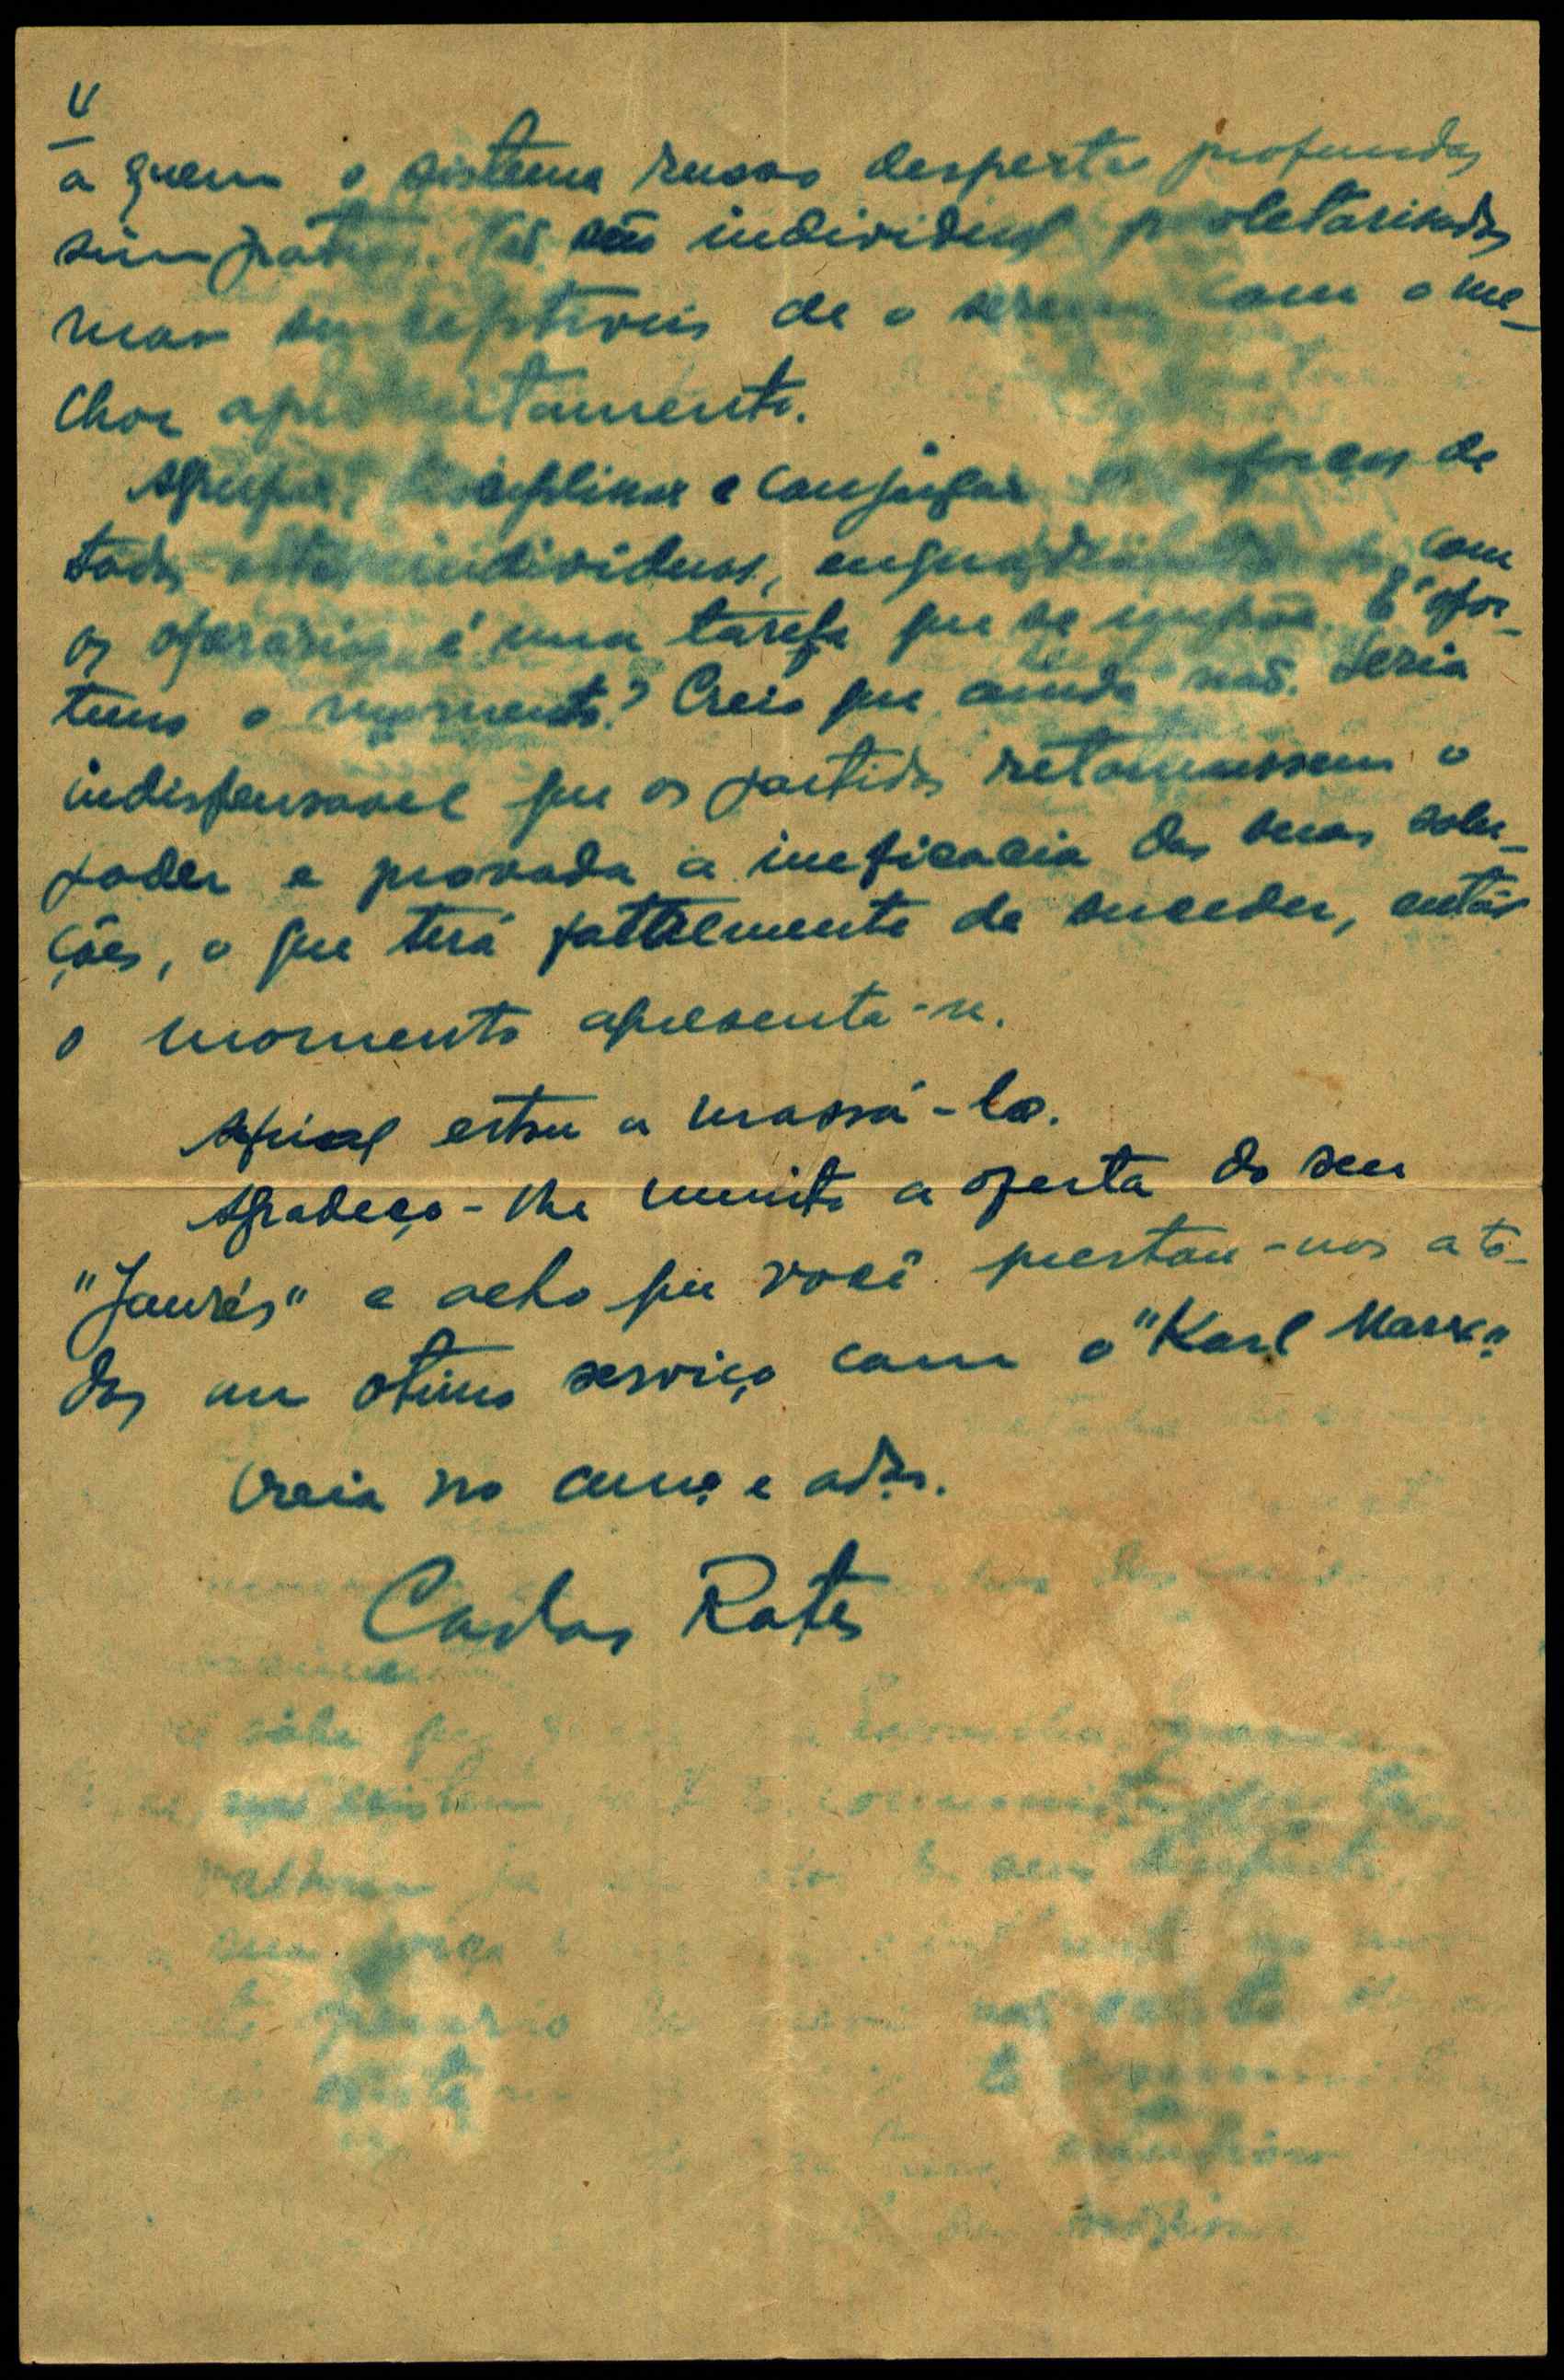 V
a quem o sistema russo desperta profundas
simpatias. Não são individuos proletarisados
mas susceptiveis de o serem com o me-
lhor aproveitamento.
Agrupar, disciplinar e conjugar os esforços de
todos estes individuos, com
os operarios é uma tarefa que se impõe. É opor-
tuno o momento? Creio que ainda não. Seria
indispensavel que os partidos retomassem o
poder e provada a ineficacia das suas solu-
ções, o que terá fatalmente de suceder, então
o momento apresenta-se.
Afinal estou a massá-lo.
Agradeço-lhe muito a oferta do seu
"Jaurés" e acho que você prestou-nos a to-
dos um otimo serviço com o "Karl Marx".
Creia no amº e adºr.
Carlos Rates